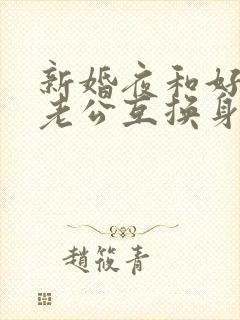 新婚夜和好
老公互换身
趙筱青